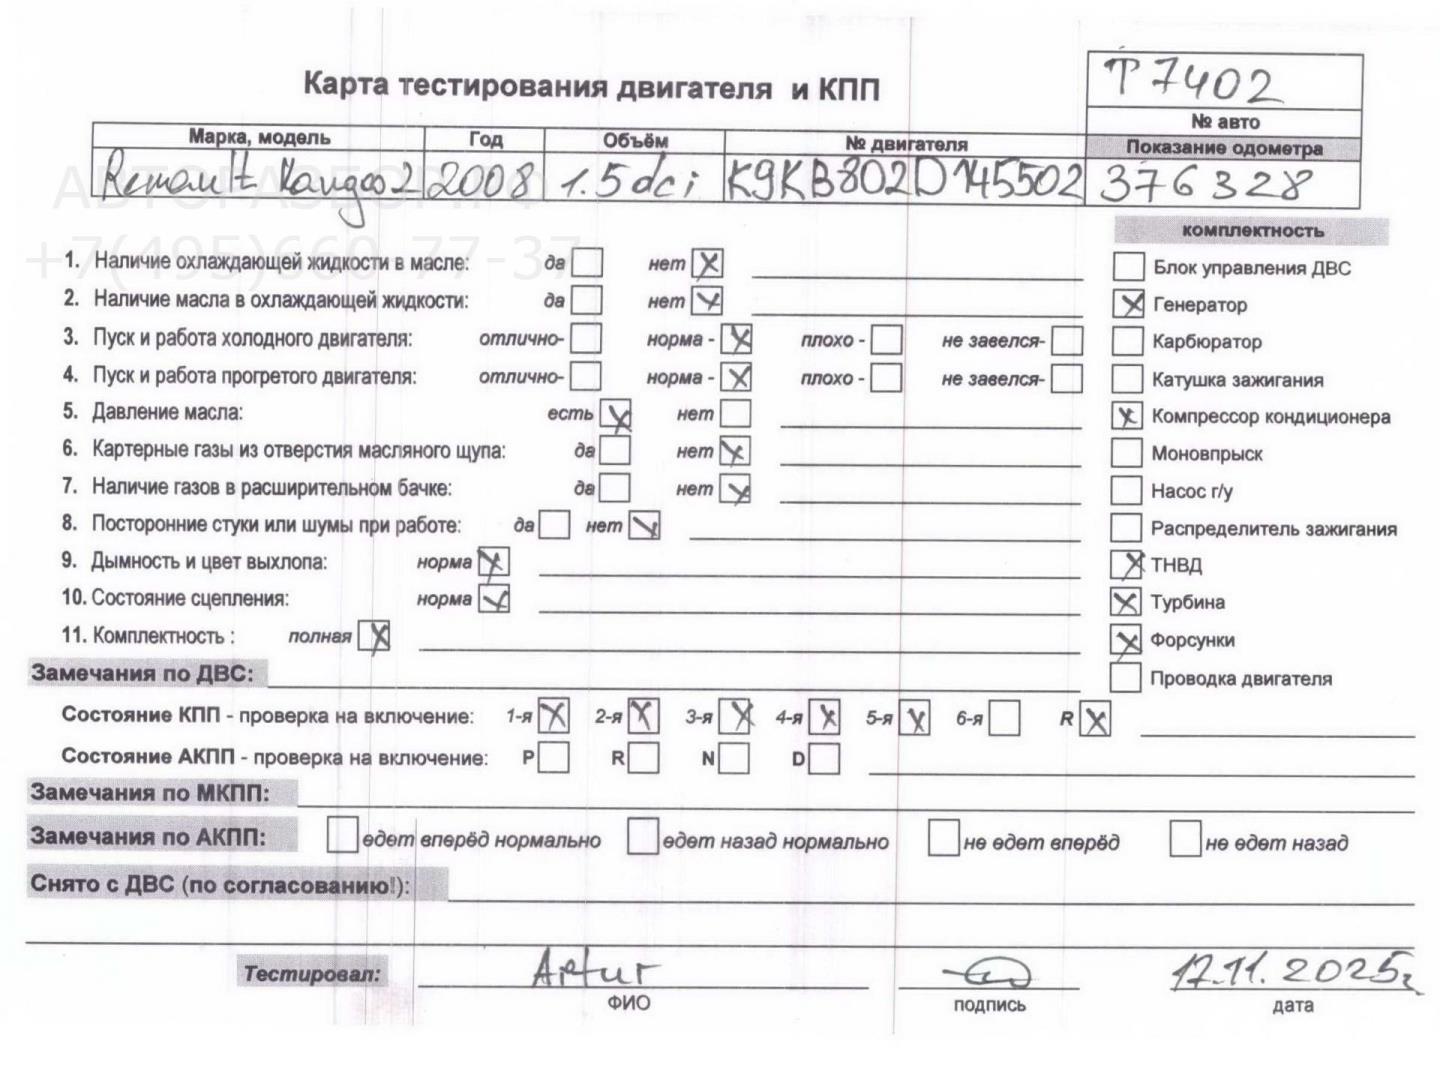 Карта тестирования двигателя и КПП
T 7402
№ авто
Марка, модель Год Объём № двигателя Показание одометра
Renault Kangoo 2 2008 1.5 dci K9KB802D145502 376328
АВТОРАЗБОР.РФ
+7(495)660-77-37
комплектность
1. Наличие охлаждающей жидкости в масле: да нет X
Блок управления ДВС
2. Наличие масла в охлаждающей жидкости: да нет X
X Генератор
3. Пуск и работа холодного двигателя: отлично- норма - X плохо - не завелся-
Карбюратор
4. Пуск и работа прогретого двигателя: отлично- норма - X плохо - не завелся-
Катушка зажигания
5. Давление масла: есть X нет
X Компрессор кондиционера
6. Картерные газы из отверстия масляного щупа: да нет X
Моновпрыск
7. Наличие газов в расширительном бачке: да нет X
Насос г/у
8. Посторонние стуки или шумы при работе: да нет X
Распределитель зажигания
9. Дымность и цвет выхлопа: норма X
X ТНВД
10. Состояние сцепления: норма X
X Турбина
11. Комплектность : полная X
X Форсунки
Замечания по ДВС:
Проводка двигателя
Состояние КПП - проверка на включение: 1-я X 2-я X 3-я X 4-я X 5-я X 6-я R X
Состояние АКПП - проверка на включение: P R N D
Замечания по МКПП:
Замечания по АКПП: едет вперёд нормально едет назад нормально не едет вперёд не едет назад
Снято с ДВС (по согласованию!):
Тестировал: Artur 17.11.2025г.
ФИО подпись дата